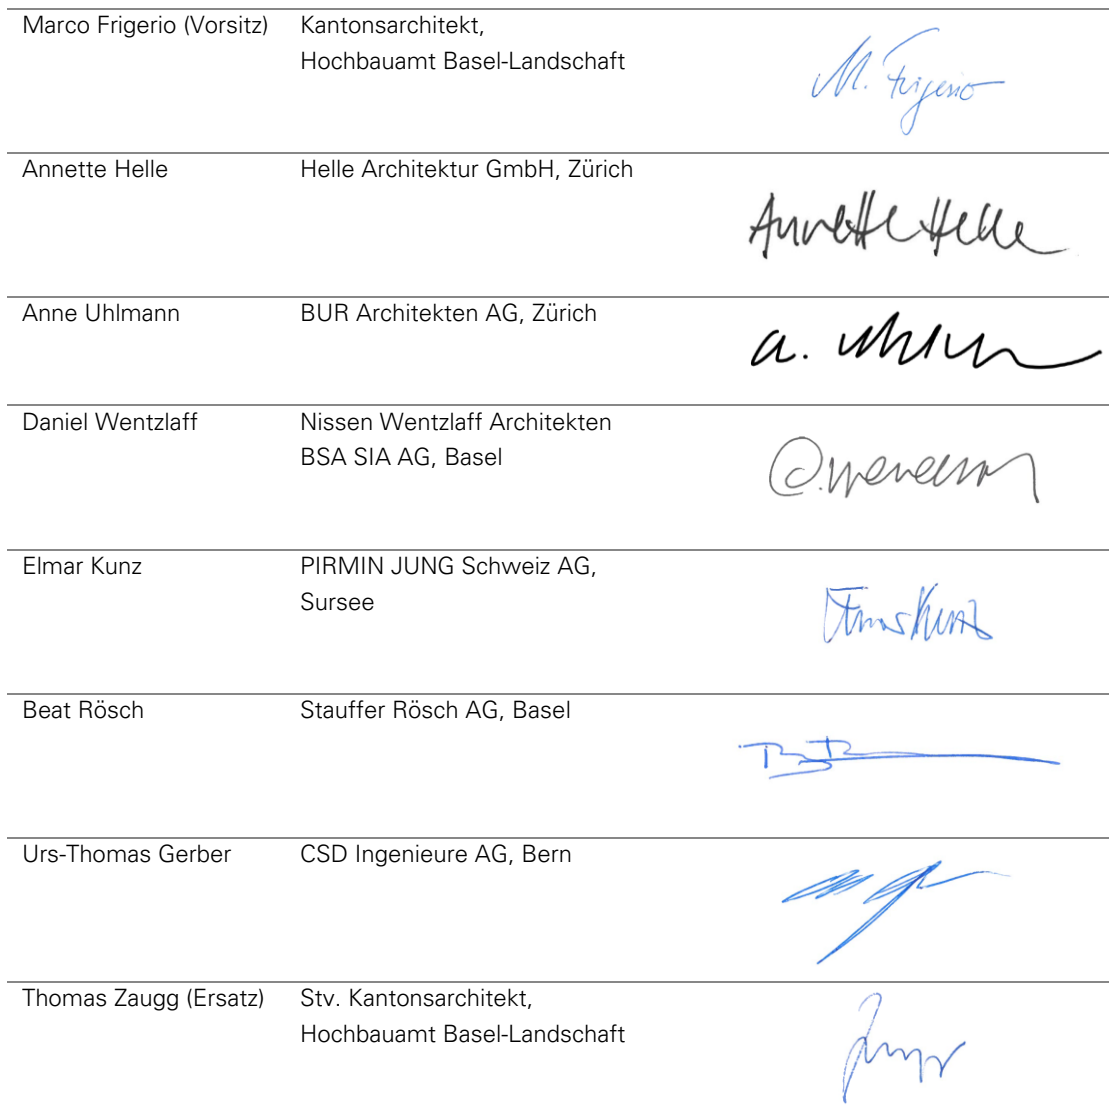 Marco Frigerio (Vorsitz) Kantonsarchitekt,
Hochbauamt Basel-Landschaft
M. Frigerio
Annette Helle Helle Architektur GmbH, Zürich
Annette Helle
Anne Uhlmann BUR Architekten AG, Zürich
a. Uhlmann
Daniel Wentzlaff Nissen Wentzlaff Architekten
BSA SIA AG, Basel
Elmar Kunz PIRMIN JUNG Schweiz AG,
Sursee
Elmar Kunz
Beat Rösch Stauffer Rösch AG, Basel
Urs-Thomas Gerber CSD Ingenieure AG, Bern
Thomas Zaugg (Ersatz) Stv. Kantonsarchitekt,
Hochbauamt Basel-Landschaft